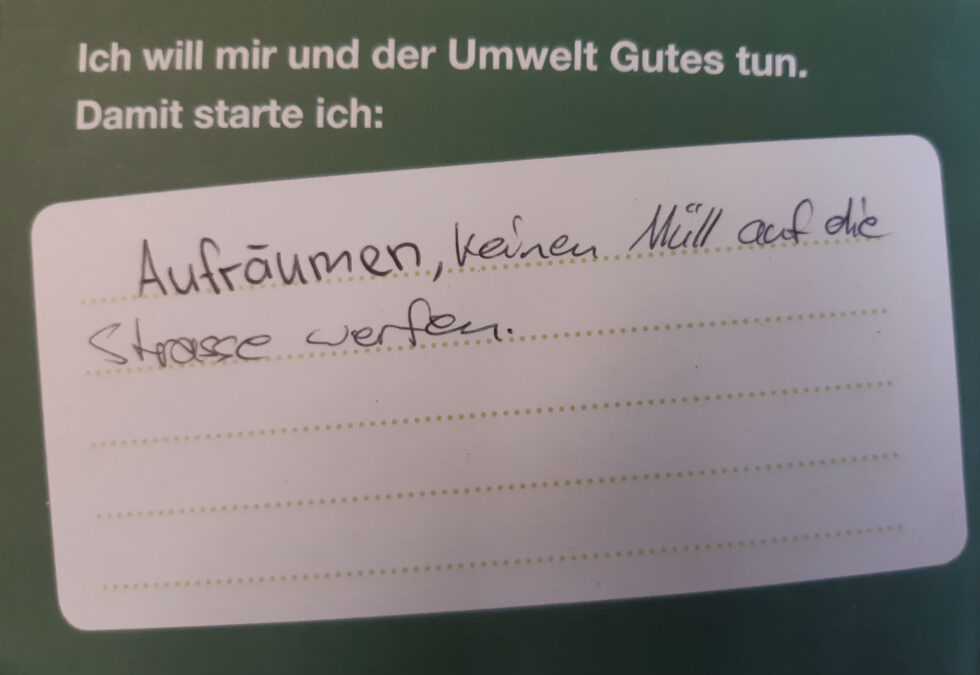 Ich will mir und der Umwelt Gutes tun.
Damit starte ich:
Aufräumen, keinen Müll auf die
Strasse werfen.